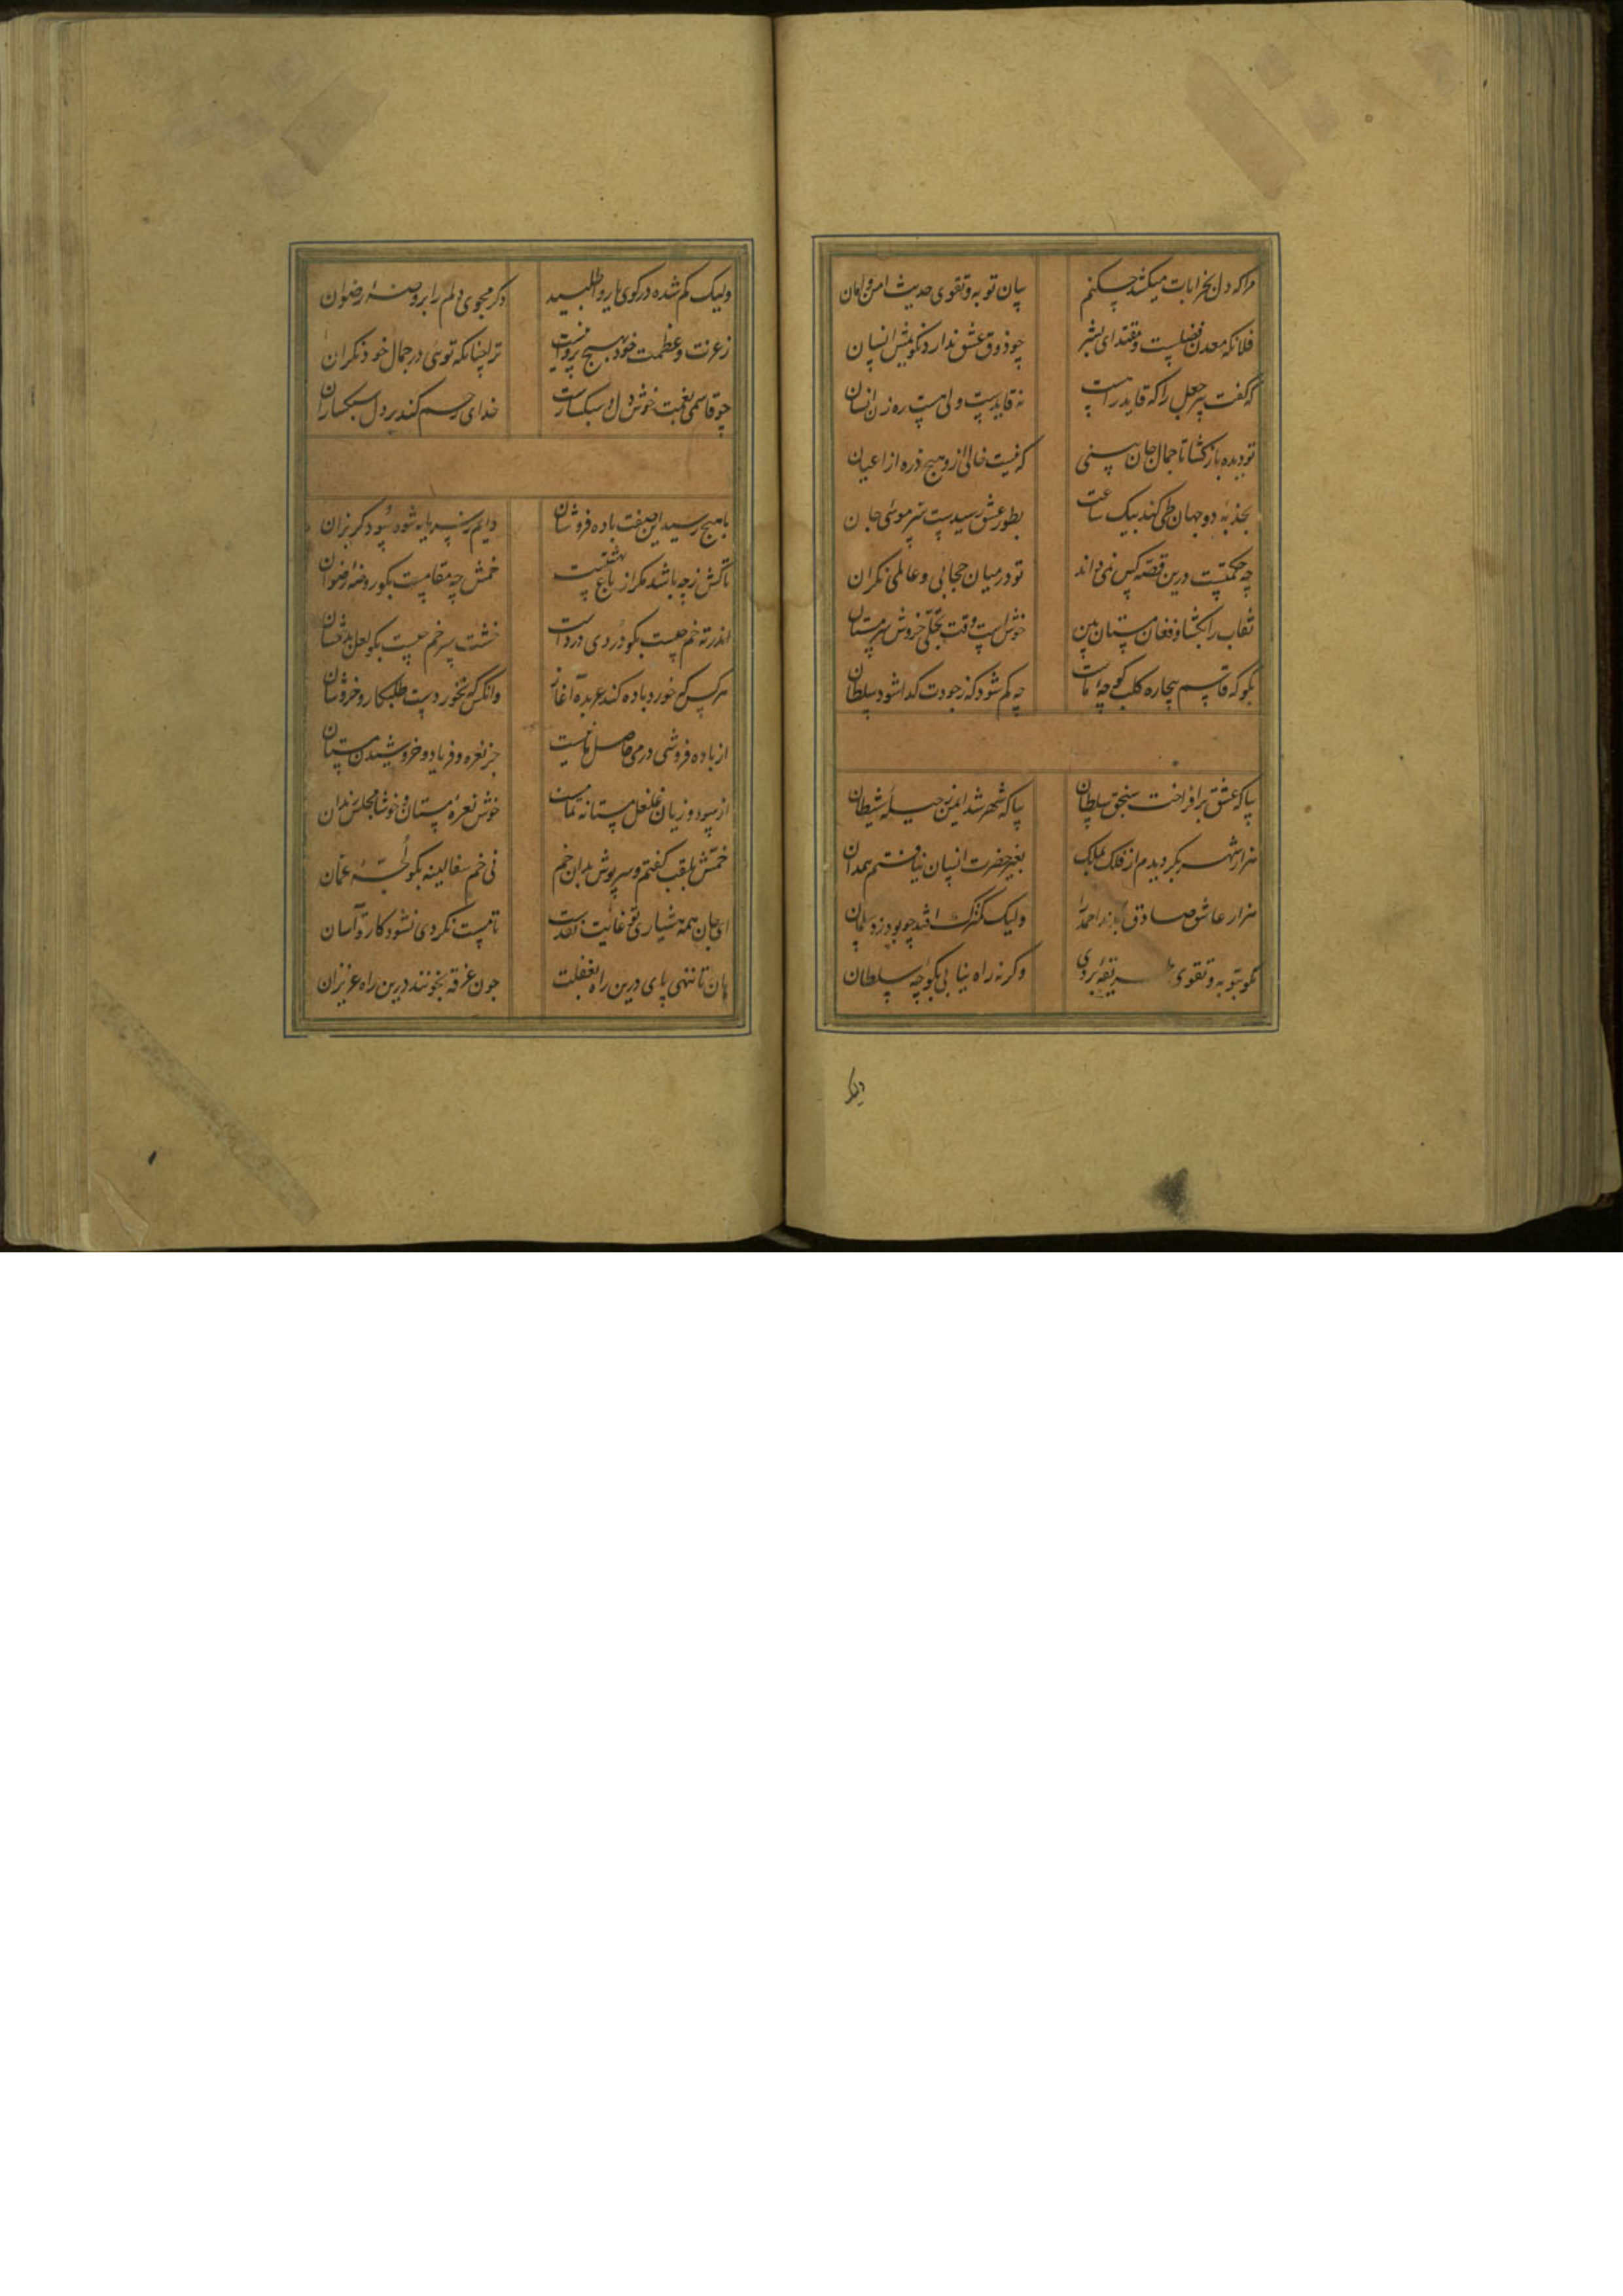 مرا که دل بخرابات میکشد چکنم بیان توبه و تقوی حدیث امن و امان
فلانکه معدن فضلست و مقتدای بشر چو ذوق عشق ندارد نکومش انسان
که گفت پیر جعل را که قاید راهست نه قایدست ولی هست ره زن انسان
تو دیده باز کشا تا جمال جان بینی که نیست خالی ازو هیچ ذره از اعیان
بجذبهٔ دو جهان طی کند بیک ساعت بطور عشق رسیدست سر موسی جان
چه حکمتست درین قصه کس نمی داند تو در میان حجابی و عالمی نکران
نقاب را بکشا و فغان مستان بین خوش است وقت تجلی خروش سرمستان
بکو که قاسم بیچاره کلب کوچه ماست چه کم شود که ز جودت کدا شود سلطان
بیا که عشق برافراخت سنجق سلطان بیا که شهر شد ایمن ز حیلهٔ شیطان
هزار شهر بکردیدم از فلک بملک بغیر حضرت انسان نیافتم همدان
هزار عاشق صادق احمد را ولیک کمترک افتد چو بوذر و سلمان
بکو بتوبه و تقوی طریقه بردی وکرنه راه نیابی بکوچه سلطان
ولیک کم شده در کوی یار واطلبید دکر مجوی دلم را بروضهٔ رضوان
ز عزت و عظمت خود بهیچ پروا نیست ترا چنانکه توئی در جمال خود نکران
چو قاسمی بغمت خوش دل و سبکسارست خدای رحم کند بر دل سبکساران
با هیچ رسید این صفت باده فروشان دایم سر سرمایه شود سود کریزان
تاکش ز چه باشد مکر از باغ بهشتست خمش چه مقامست بکو روضهٔ رضوان
اندر ته خم چیست بکو دردی دردست خشت سر خم چیست بکو لعل بدخشان
هر کس که خورد باده کند عربده آغاز وانکس که نخوردست طلبکار و خروشان
از باده فروشی درمی حاصل ما نیست جز نعره و فریاد و خروشیدن مستان
از سود و زیان غلغل مستانه تمامست خوش نعرهٔ مستان و خوشا مجلس رندان
خمش بلقب کفتم و سرپوش بدان خم نی خم سفالینه بکو لجهٔ عمان
ای جان همه هشیاری تو غائیت بعدست تا مست نکردی نشود کار تو آسان
هان تا ننهی پای درین راه بغفلت چون غرقه بخونند درین راه عزیزان